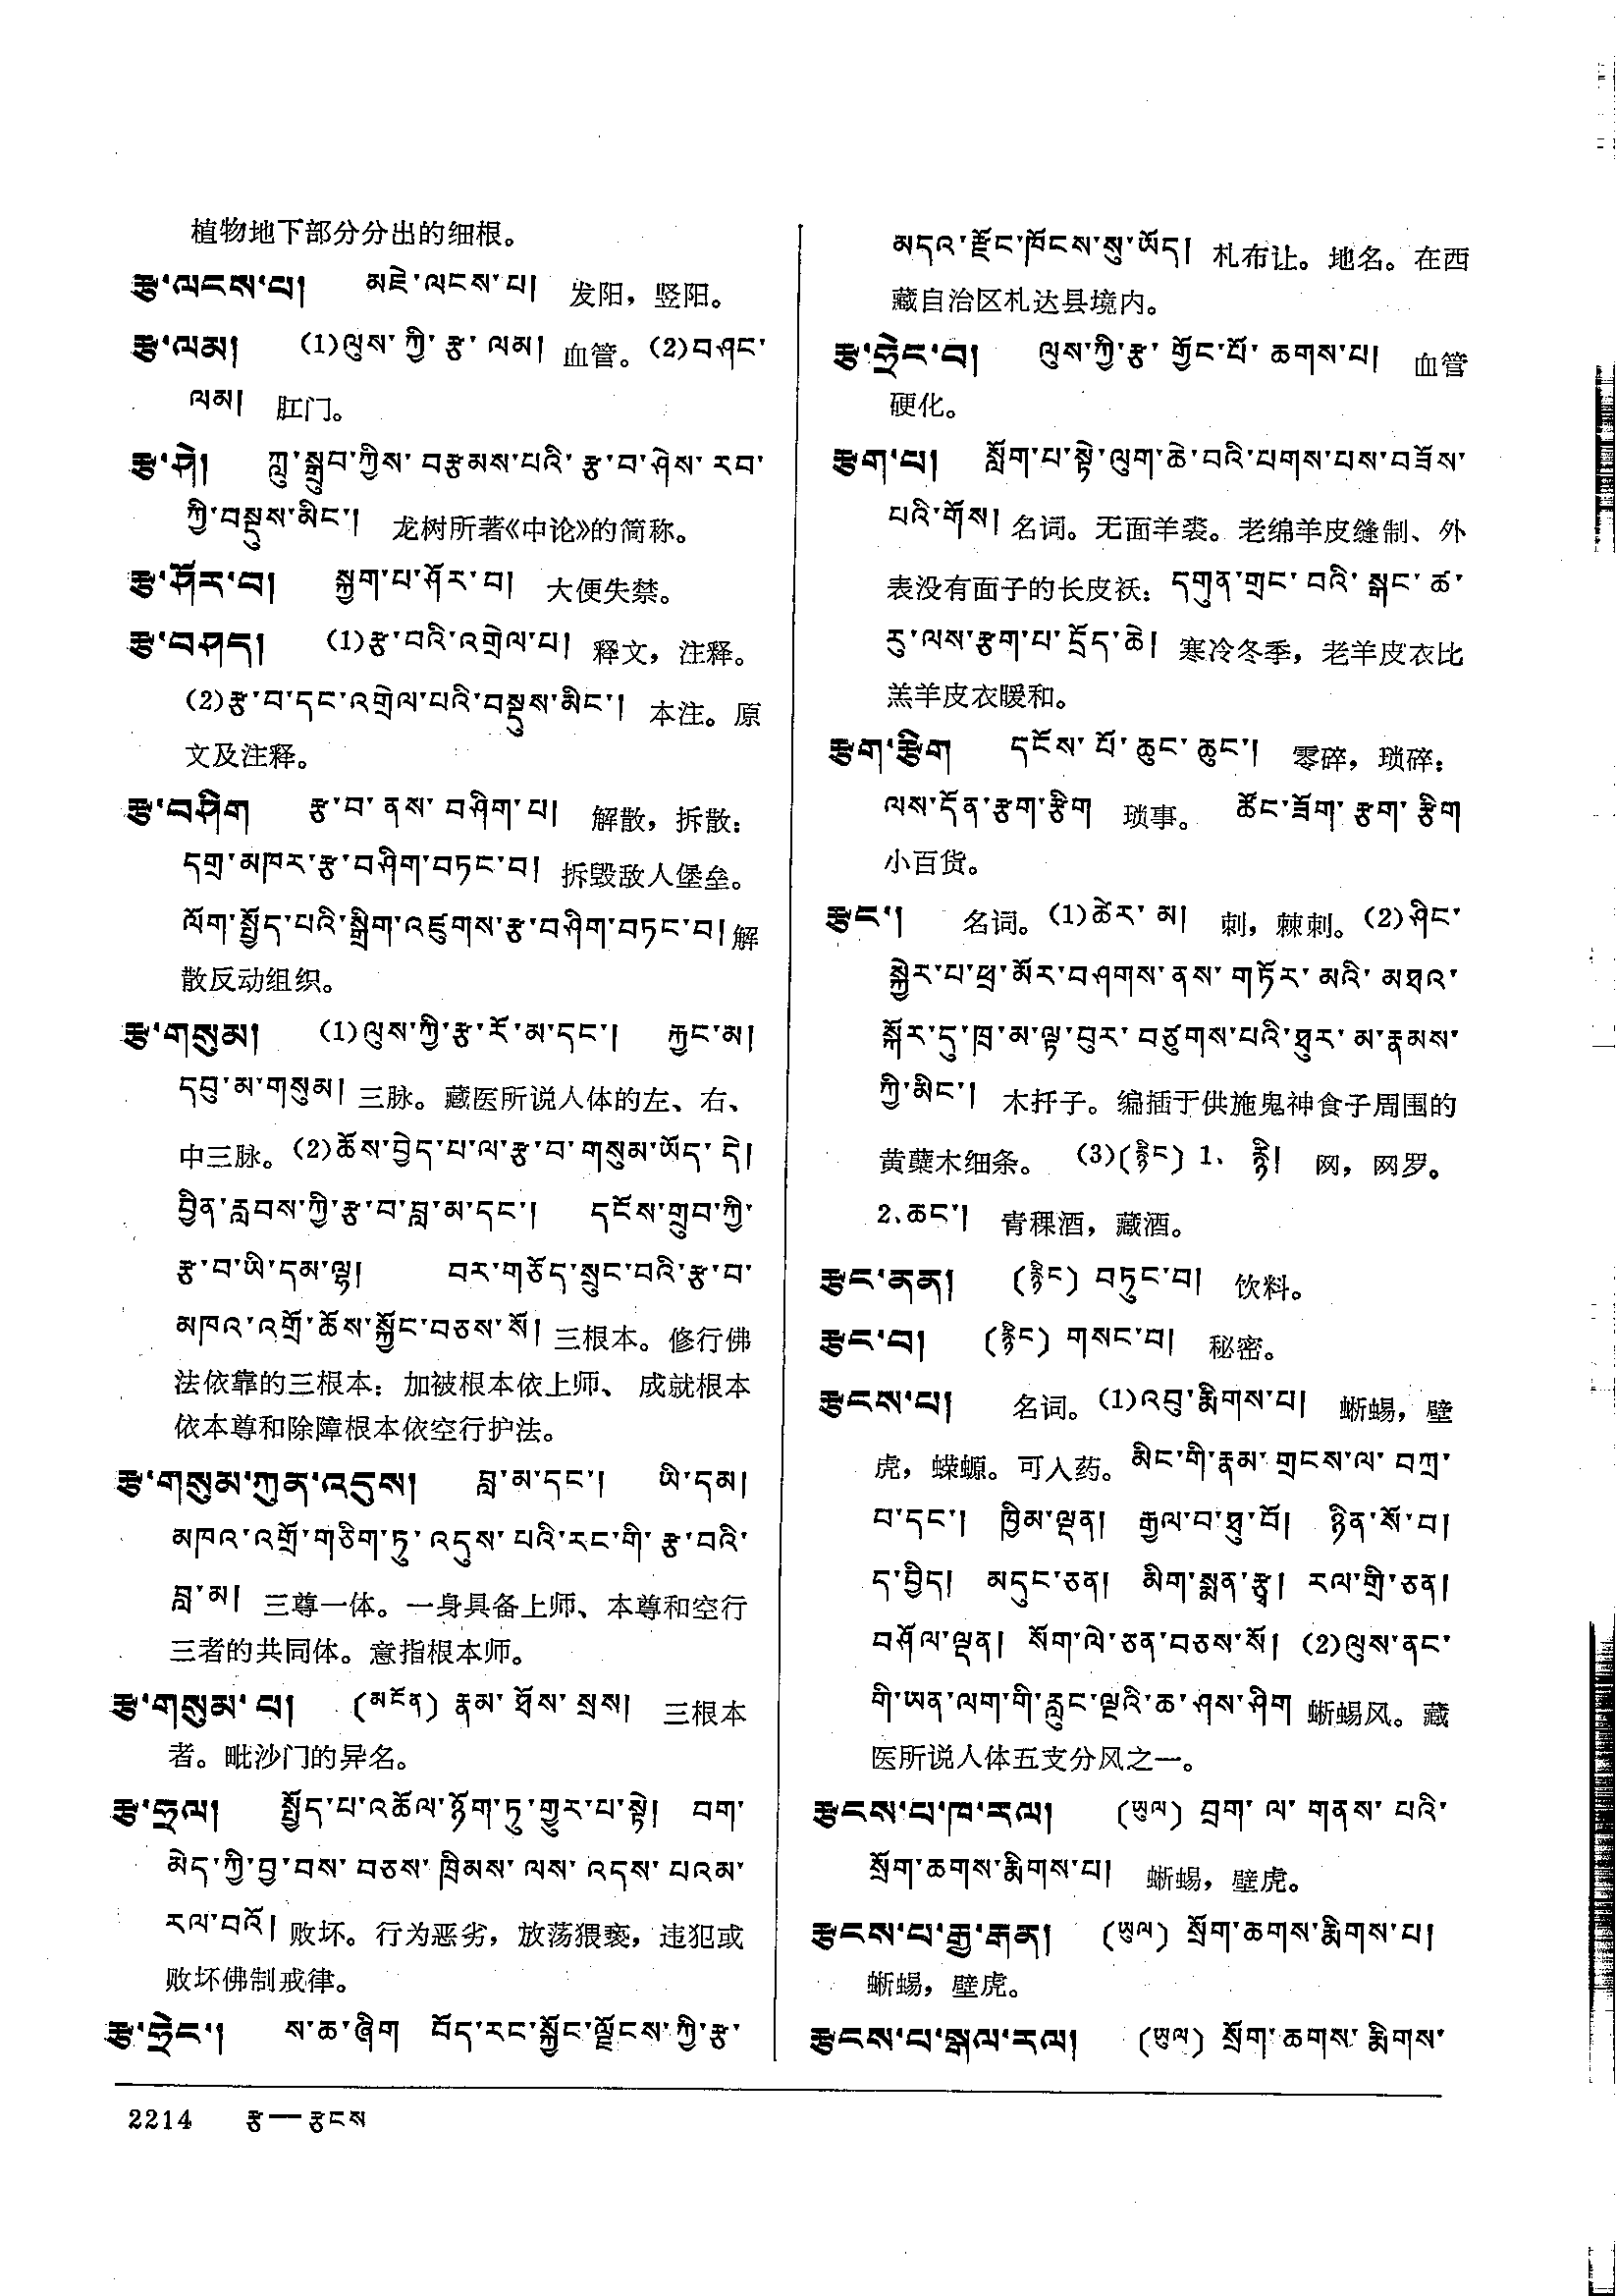 植物地下部分分出的细根。
རྩ་ལངས་པ། མཇེ་ལངས་པ། 发阳，竖阳。
རྩ་ལམ། (1)ལུས་ཀྱི་རྩ་ལམ། 血管。(2)བཤང་
ལམ། 肛门。
རྩ་ཤེ། ཀླུ་སྒྲུབ་ཀྱིས་བརྩམས་པའི་རྩ་བ་ཤེས་རབ་
ཀྱི་བསྡུས་མིང་། 龙树所著《中论》的简称。
རྩ་ཤོར་བ། སྐྱག་པ་ཤོར་བ། 大便失禁。
རྩ་བཤད། (1)རྩ་བའི་འགྲེལ་པ། 释文，注释。
(2)རྩ་བ་དང་འགྲེལ་པའི་བསྡུས་མིང་། 本注。原
文及注释。
རྩ་བཤིག རྩ་བ་ནས་བཤིག་པ། 解散，拆散：
དགྲ་མཁར་རྩ་བཤིག་བཏང་བ། 拆毁敌人堡垒。
ལོག་སྤྱོད་པའི་སྒྲིག་འཛུགས་རྩ་བཤིག་བཏང་བ། 解
散反动组织。
རྩ་གསུམ། (1)ལུས་ཀྱི་རྩ་རོ་མ་དང་། རྐྱང་མ།
དབུ་མ་གསུམ། 三脉。藏医所说人体的左、右、
中三脉。(2)ཆོས་བྱེད་པ་ལ་རྩ་བ་གསུམ་ཡོད་དེ།
བྱིན་རླབས་ཀྱི་རྩ་བ་བླ་མ་དང་། དངོས་གྲུབ་ཀྱི་
རྩ་བ་ཡི་དམ་ལྷ། བར་གཅོད་སྲུང་བའི་རྩ་བ་
མཁའ་འགྲོ་ཆོས་སྐྱོང་བཅས་སོ། 三根本。修行佛
法依靠的三根本：加被根本依上师、成就根本
依本尊和除障根本依空行护法。
རྩ་གསུམ་ཀུན་འདུས། བླ་མ་དང་། ཡི་དམ།
མཁའ་འགྲོ་གཅིག་ཏུ་འདུས་པའི་རང་གི་རྩ་བའི་
བླ་མ། 三尊一体。一身具备上师、本尊和空行
三者的共同体。意指根本师。
རྩ་གསུམ་པ། (མངོན) རྣམ་ཐོས་སྲས། 三根本
者。毗沙门的异名。
རྩ་ཧྲལ། སྤྱོད་པ་འཚོལ་ཉོག་ཏུ་གྱུར་པ་སྟེ། བག་
མེད་ཀྱི་བྱ་བས་བཅས་ཁྲིམས་ལས་འདས་པའམ་
རལ་བའོ། 败坏。行为恶劣，放荡猥亵，违犯或
败坏佛制戒律。
རྩ་ཧྲེང་། ས་ཆ་ཞིག བོད་རང་སྐྱོང་ལྗོངས་ཀྱི་རྩ་
མདའ་རྫོང་ཁོངས་སུ་ཡོད། 札布让。地名。在西
藏自治区札达县境内。
རྩ་ཧྲེང་བ། ལུས་ཀྱི་རྩ་གྱོང་པོ་ཆགས་པ། 血管
硬化。
རྩག་པ། སློག་པ་སྟེ་ལུག་ཆེ་བའི་པགས་པས་བཟོས་
པའི་གོས། 名词。无面羊裘。老绵羊皮缝制、外
表没有面子的长皮袄：དགུན་གྲང་བའི་སྒང་ཚ་
རུ་ལས་རྩག་པ་དྲོད་ཆེ། 寒冷冬季，老羊皮衣比
羔羊皮衣暖和。
རྩག་རྩིག དངོས་པོ་ཆུང་ཆུང་། 零碎，琐碎：
ལས་དོན་རྩག་རྩིག 琐事。 ཚོང་ཟོག་རྩག་རྩིག
小百货。
རྩང་། 名词。(1)ཚེར་མ། 刺，棘刺。(2)ཤིང་
སྐྱེར་པ་ཕྲ་མོར་བཤགས་ནས་གཏོར་མའི་མཐའ་
སྐོར་དུ་ཁྲ་མ་ལྟ་བུར་བཙུགས་པའི་ཐུར་མ་རྣམས་
ཀྱི་མིང་། 木扦子。编插于供施鬼神食子周围的
黄蘗木细条。 (3)(རྙིང) 1、 རྙི། 网，网罗。
2、ཆང་། 青稞酒，藏酒。
རྩང་ནན། (རྙིང) བཏུང་བ། 饮料。
རྩང་བ། (རྙིང) གསང་བ། 秘密。
རྩངས་པ། 名词。(1)འབུ་རྨིགས་པ། 蜥蜴，壁
虎，蝾螈。可入药。མིང་གི་རྣམ་གྲངས་ལ་བཀྲ་
བ་དང་། ཁྱིམ་ལྡན། རྒྱལ་བ་ཐུ་བོ། ཉིན་སོ་བ།
ད་བྱིད། མདུང་ཅན། མིག་སྨན་རྩྭ། རལ་གྲི་ཅན།
བཤོལ་ལྡན། སོག་ལེ་ཅན་བཅས་སོ། (2)ལུས་ནང་
གི་ཡན་ལག་གི་རླུང་ལྔའི་ཆ་ཤས་ཤིག 蜥蜴风。藏
医所说人体五支分风之一。
རྩངས་པ་ཁ་རལ། (ཡུལ) བྲག་ལ་གནས་པའི་
སྲོག་ཆགས་རྨིགས་པ། 蜥蜴，壁虎。
རྩངས་པ་རྒྱ་རྒན། (ཡུལ) སྲོག་ཆགས་རྨིགས་པ།
蜥蜴，壁虎。
རྩངས་པ་སྒལ་རལ། (ཡུལ) སྲོག་ཆགས་རྨིགས་
2214 རྩ—རྩངས